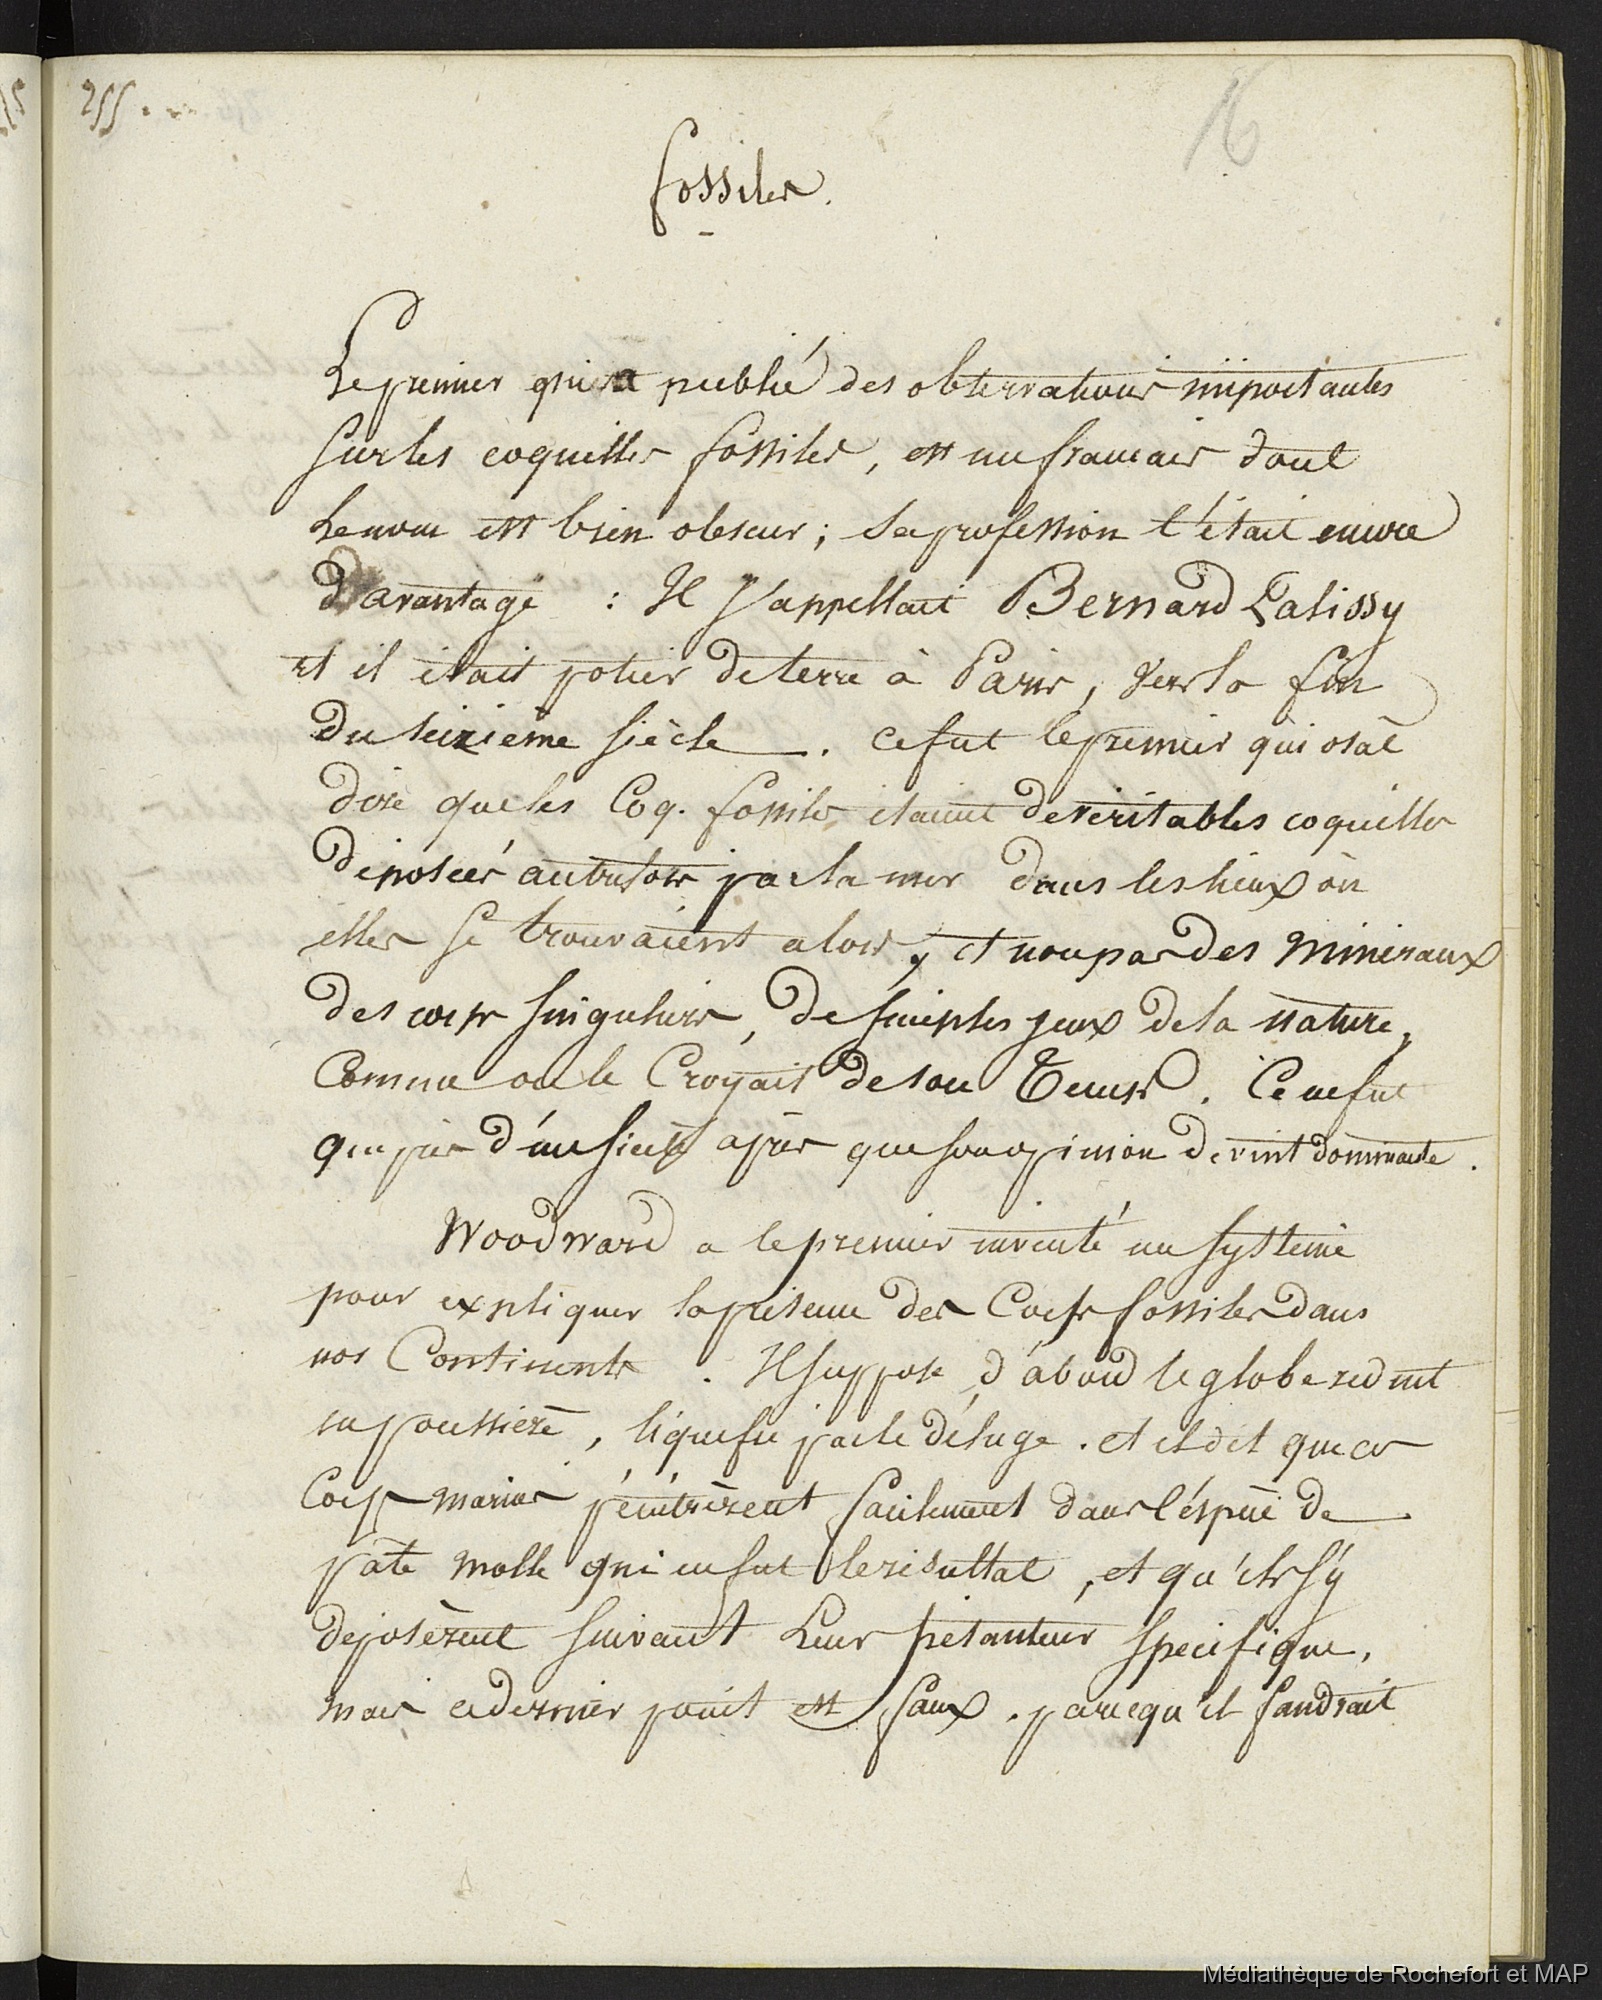 255.
16
fossiles.
Le premier qui a publié des observations importantes
sur les coquilles fossiles, est un francais dont
le nom est bien obscur ; sa profession l'était encore
d'avantage : Il s'appellait Bernard Palissy
et il était potier de terre à Paris, vers la fin
du seizieme siècle. ce fut le premier qui osat
dire que les Coq. fossiles étaient de véritables coquilles
déposées autrefois par la mer dans les lieux où
elles se trouvaient alors, et non pas des mineraux
des corps singuliers, de simples jeux de la nature,
Comme on le Croyait de son Tems. Ce ne fut
que près d'un siecle après que son opinion devint dominante.
Woodward a le premier inventé un système
pour expliquer la présence des Corps fossiles dans
nos Continents. Il suppose d'abord le globe reduit
en poussiere, liquefié par le déluge. et il dit que ces
Corps marins pénétrèrent facilement dans l'éspèce de
pâte molle qui en fut le résultat, et qu'ils s'y
déposèrent suivant leur pésanteur specifique,
mais ce dernier point est faux. parcequ'il faudrait
Médiathèque de Rochefort et MAP